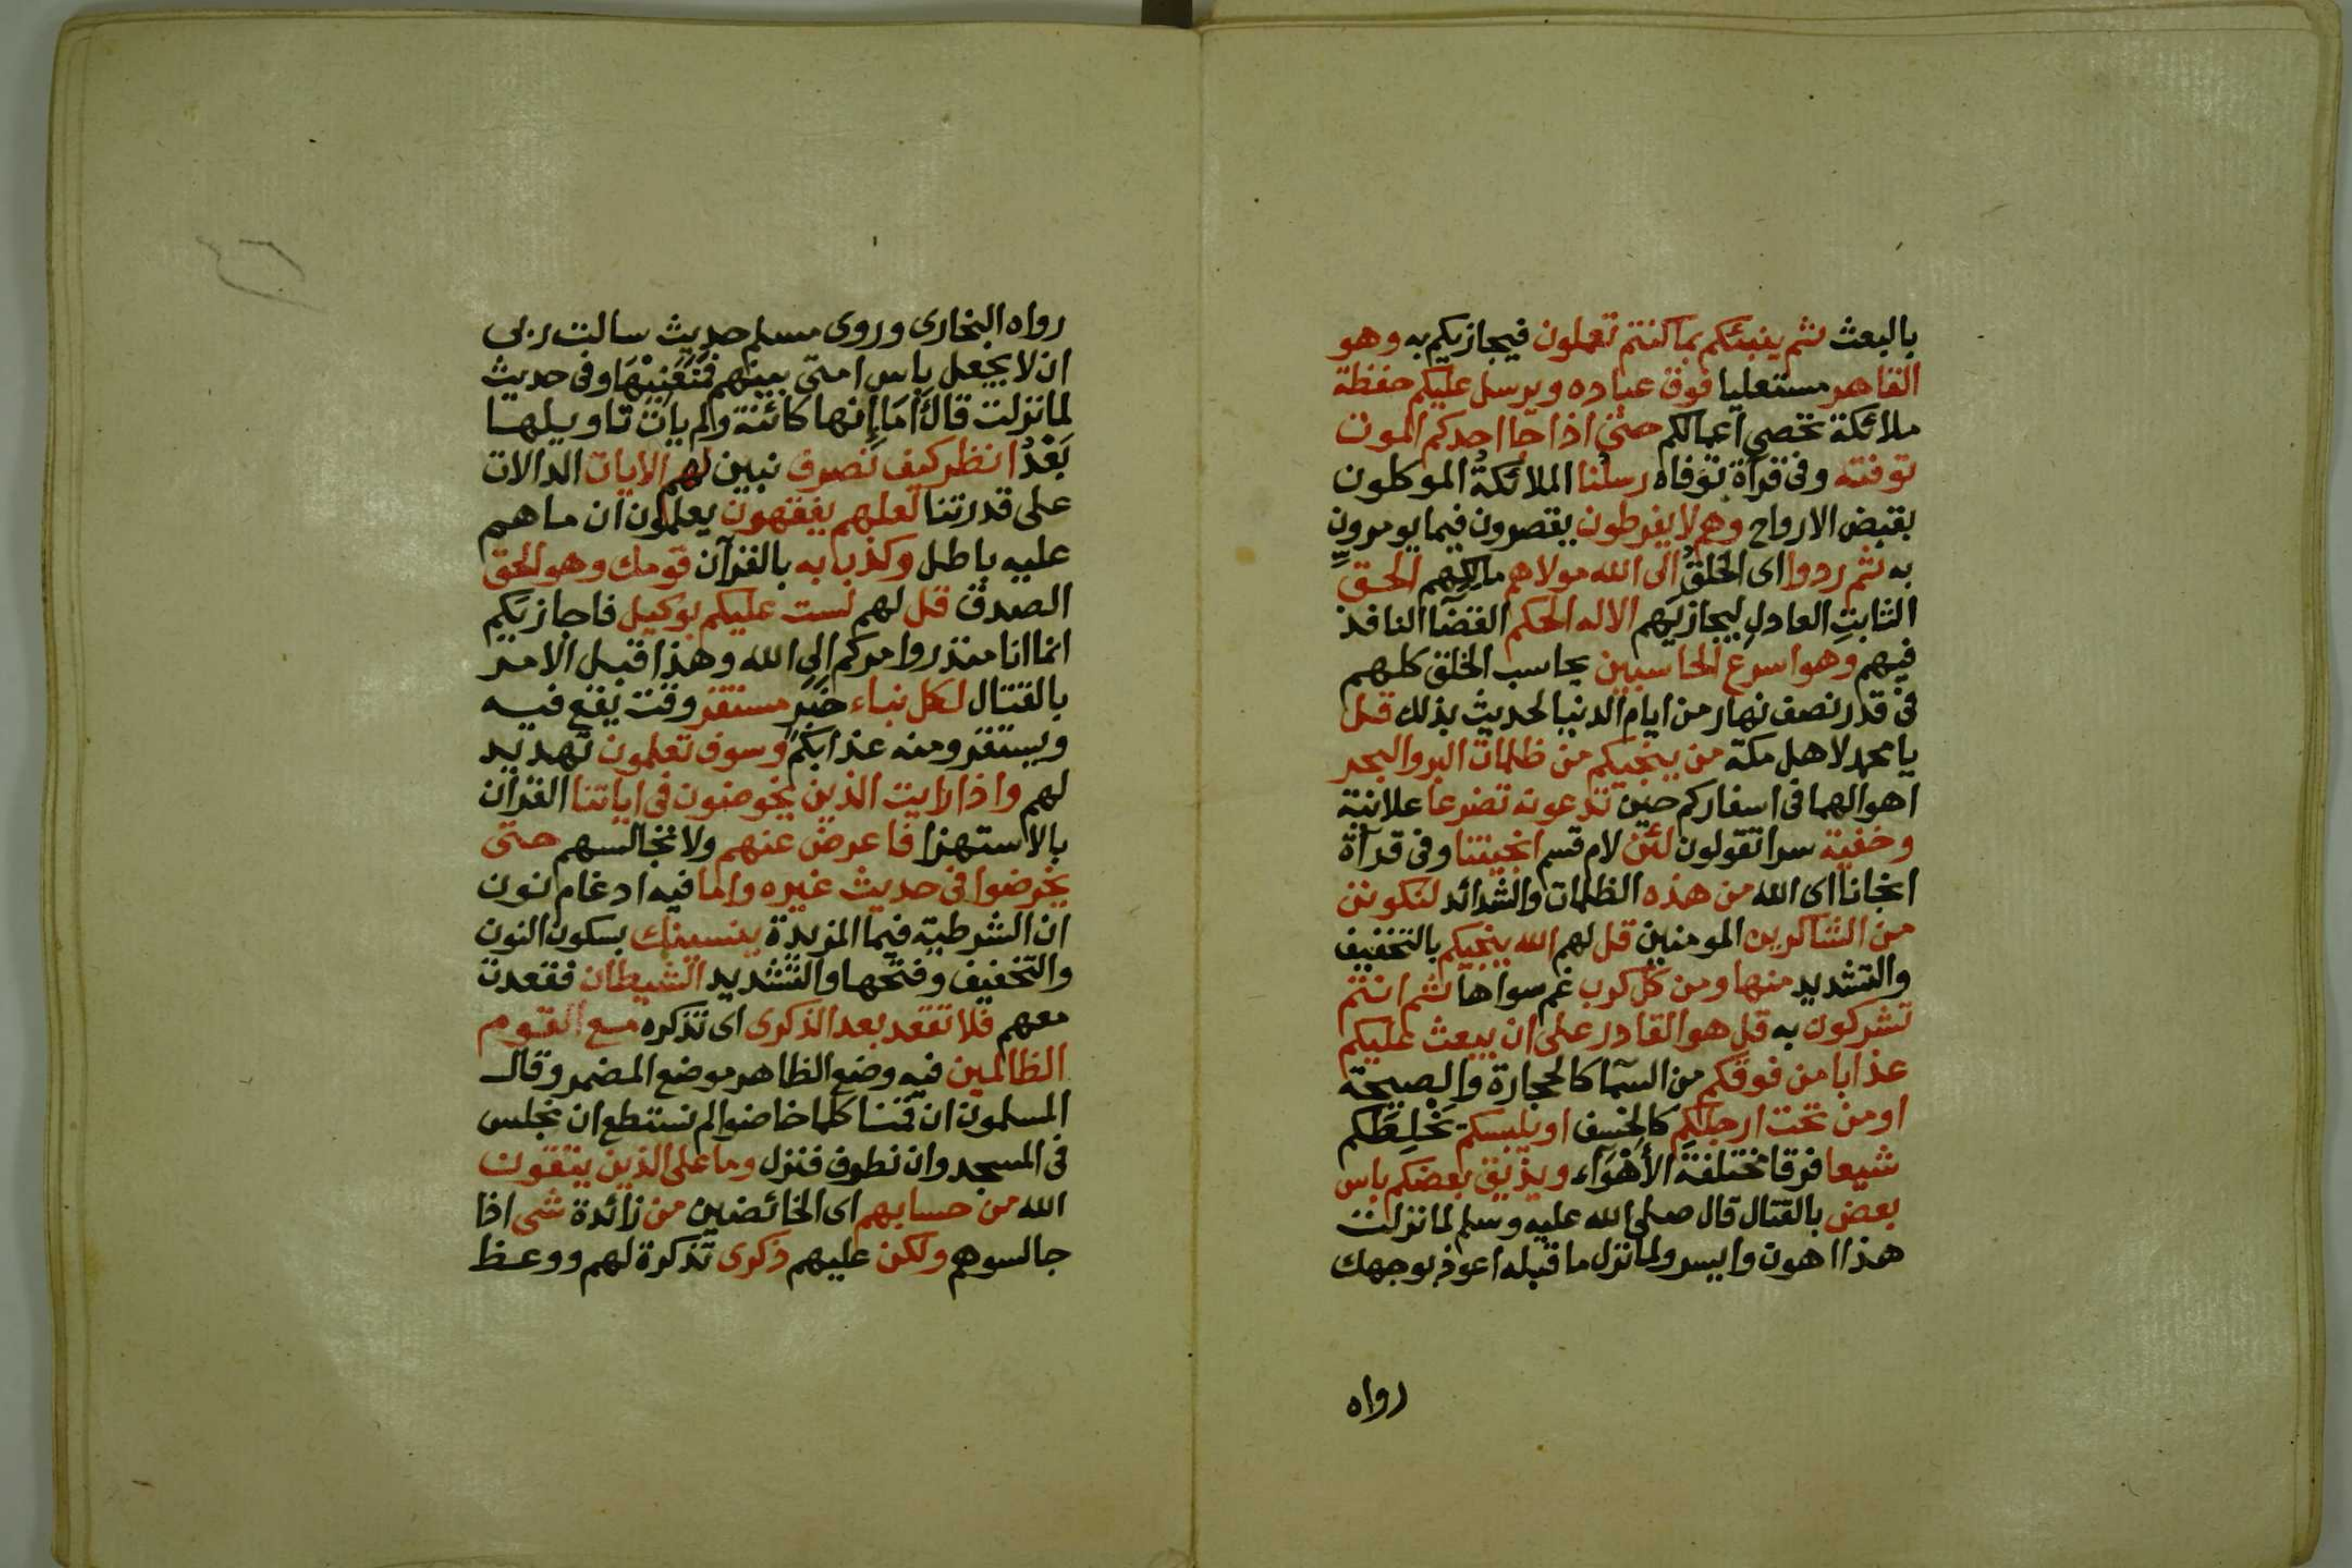 بالبعث ثم ينبئكم بما كنتم تعملون فيجازيكم به وهو
القاهر مستعليا فوق عباده ويرسل عليكم حفظة
ملائكة تحصي اعمالكم حتى اذا جا احدكم الموت
توفته وفى قرآة توفاه رسلنا الملائكة الموكلون
بقبض الارواح وهم لا يفرطون يقصرون فيما يومرون
به ثم ردوا اى الخلق الى الله مولاهم مالكهم الحقّ
الثابت العادل ليجازيهم الا له الحكم القضا النافذ
فيهم وهو اسرع الحاسبين يحاسب الخلق كلهم
فى قدر نصف نهار من ايام الدنيا لحديث بذلك قل
يا محمد لاهل مكة من ينجيكم من ظلمات البر والبحر
اهوالهما فى اسفاركم حين تدعونه تضرعا علانية
وخفية سرا تقولون لئن لام قسم انجيتنا وفى قرآة
انجانا اى الله من هذه الظلمات والشدائد لنكونن
من الشاكرين المومنين قل لهم الله ينجيكم بالتخفيف
والتشديد منها ومن كل كرب غم سواها ثم انتم
تشركون به قل هو القادر على ان يبعث عليكم
عذابا من فوقكم من السما كالحجارة والصيحة
او من تحت ارجلكم كالخسف او يلبسكم يَخْلِطَكم
شيعا فرقا مختلفة الأَهْوَآء ويذيق بعضكم باس
بعض بالقتال قال صلى الله عليه وسلم لما نزلت
هذا اهون وايسر ولما نزل ما قبله اعوذ بوجهك
رواه
رواه البخارى وروى مسلم حديث سالت ربى
ان لا يجعل باس امتى بينهم فَمَنَعَنِيْهَا وفى حديث
لما نزلت قال أَمَا إِنها كائنة ولم يات تاويلها
بَعْدُ انظر كيف نصرف نبين لهم الايات الدالات
على قدرتنا لعلهم يفقهون يعلمون ان ما هم
عليه باطل وكذب به بالقرآن قومك وهو الحق
الصدق قل لهم لست عليكم بوكيل فاجازيكم
انما انا منذر وامركم الى الله وهذا قبل الامر
بالقتال لكل نباء خبر مستقر وقت يقع فيه
ويستقر ومنه عذابكم وسوف تعلمون تهديد
لهم واذا رايت الذين يخوضون فى اياتنا القرآن
بالاستهزا فاعرض عنهم ولا تجالسهم حتى
يخوضوا فى حديث غيره واما فيه ادغام نون
ان الشرطية فيما المزيدة ينسينك بسكون النون
والتخفيف وفتحها والتشديد الشيطان فقعدت
معهم فلا تقعد بعد الذكرى اى تذكره مع القوم
الظالمين فيه وضع الظاهر موضع المضمر وقال
المسلمون ان قمنا كلما خاضوا لم نستطع ان نجلس
فى المسجد وان نطوف فنزل وما على الذين يتقون
الله من حسابهم اى الخائضين من زائدة شى اذا
جالسوهم ولكن عليهم ذكرى تذكرة لهم ووعظ